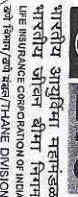 भारतीय आयुर्विमा महामंडळ
भारतीय जीवन बीमा निगम
LIFE INSURANCE CORPORATION OF INDIA
ठाणे मंडल/THANE DIVISION